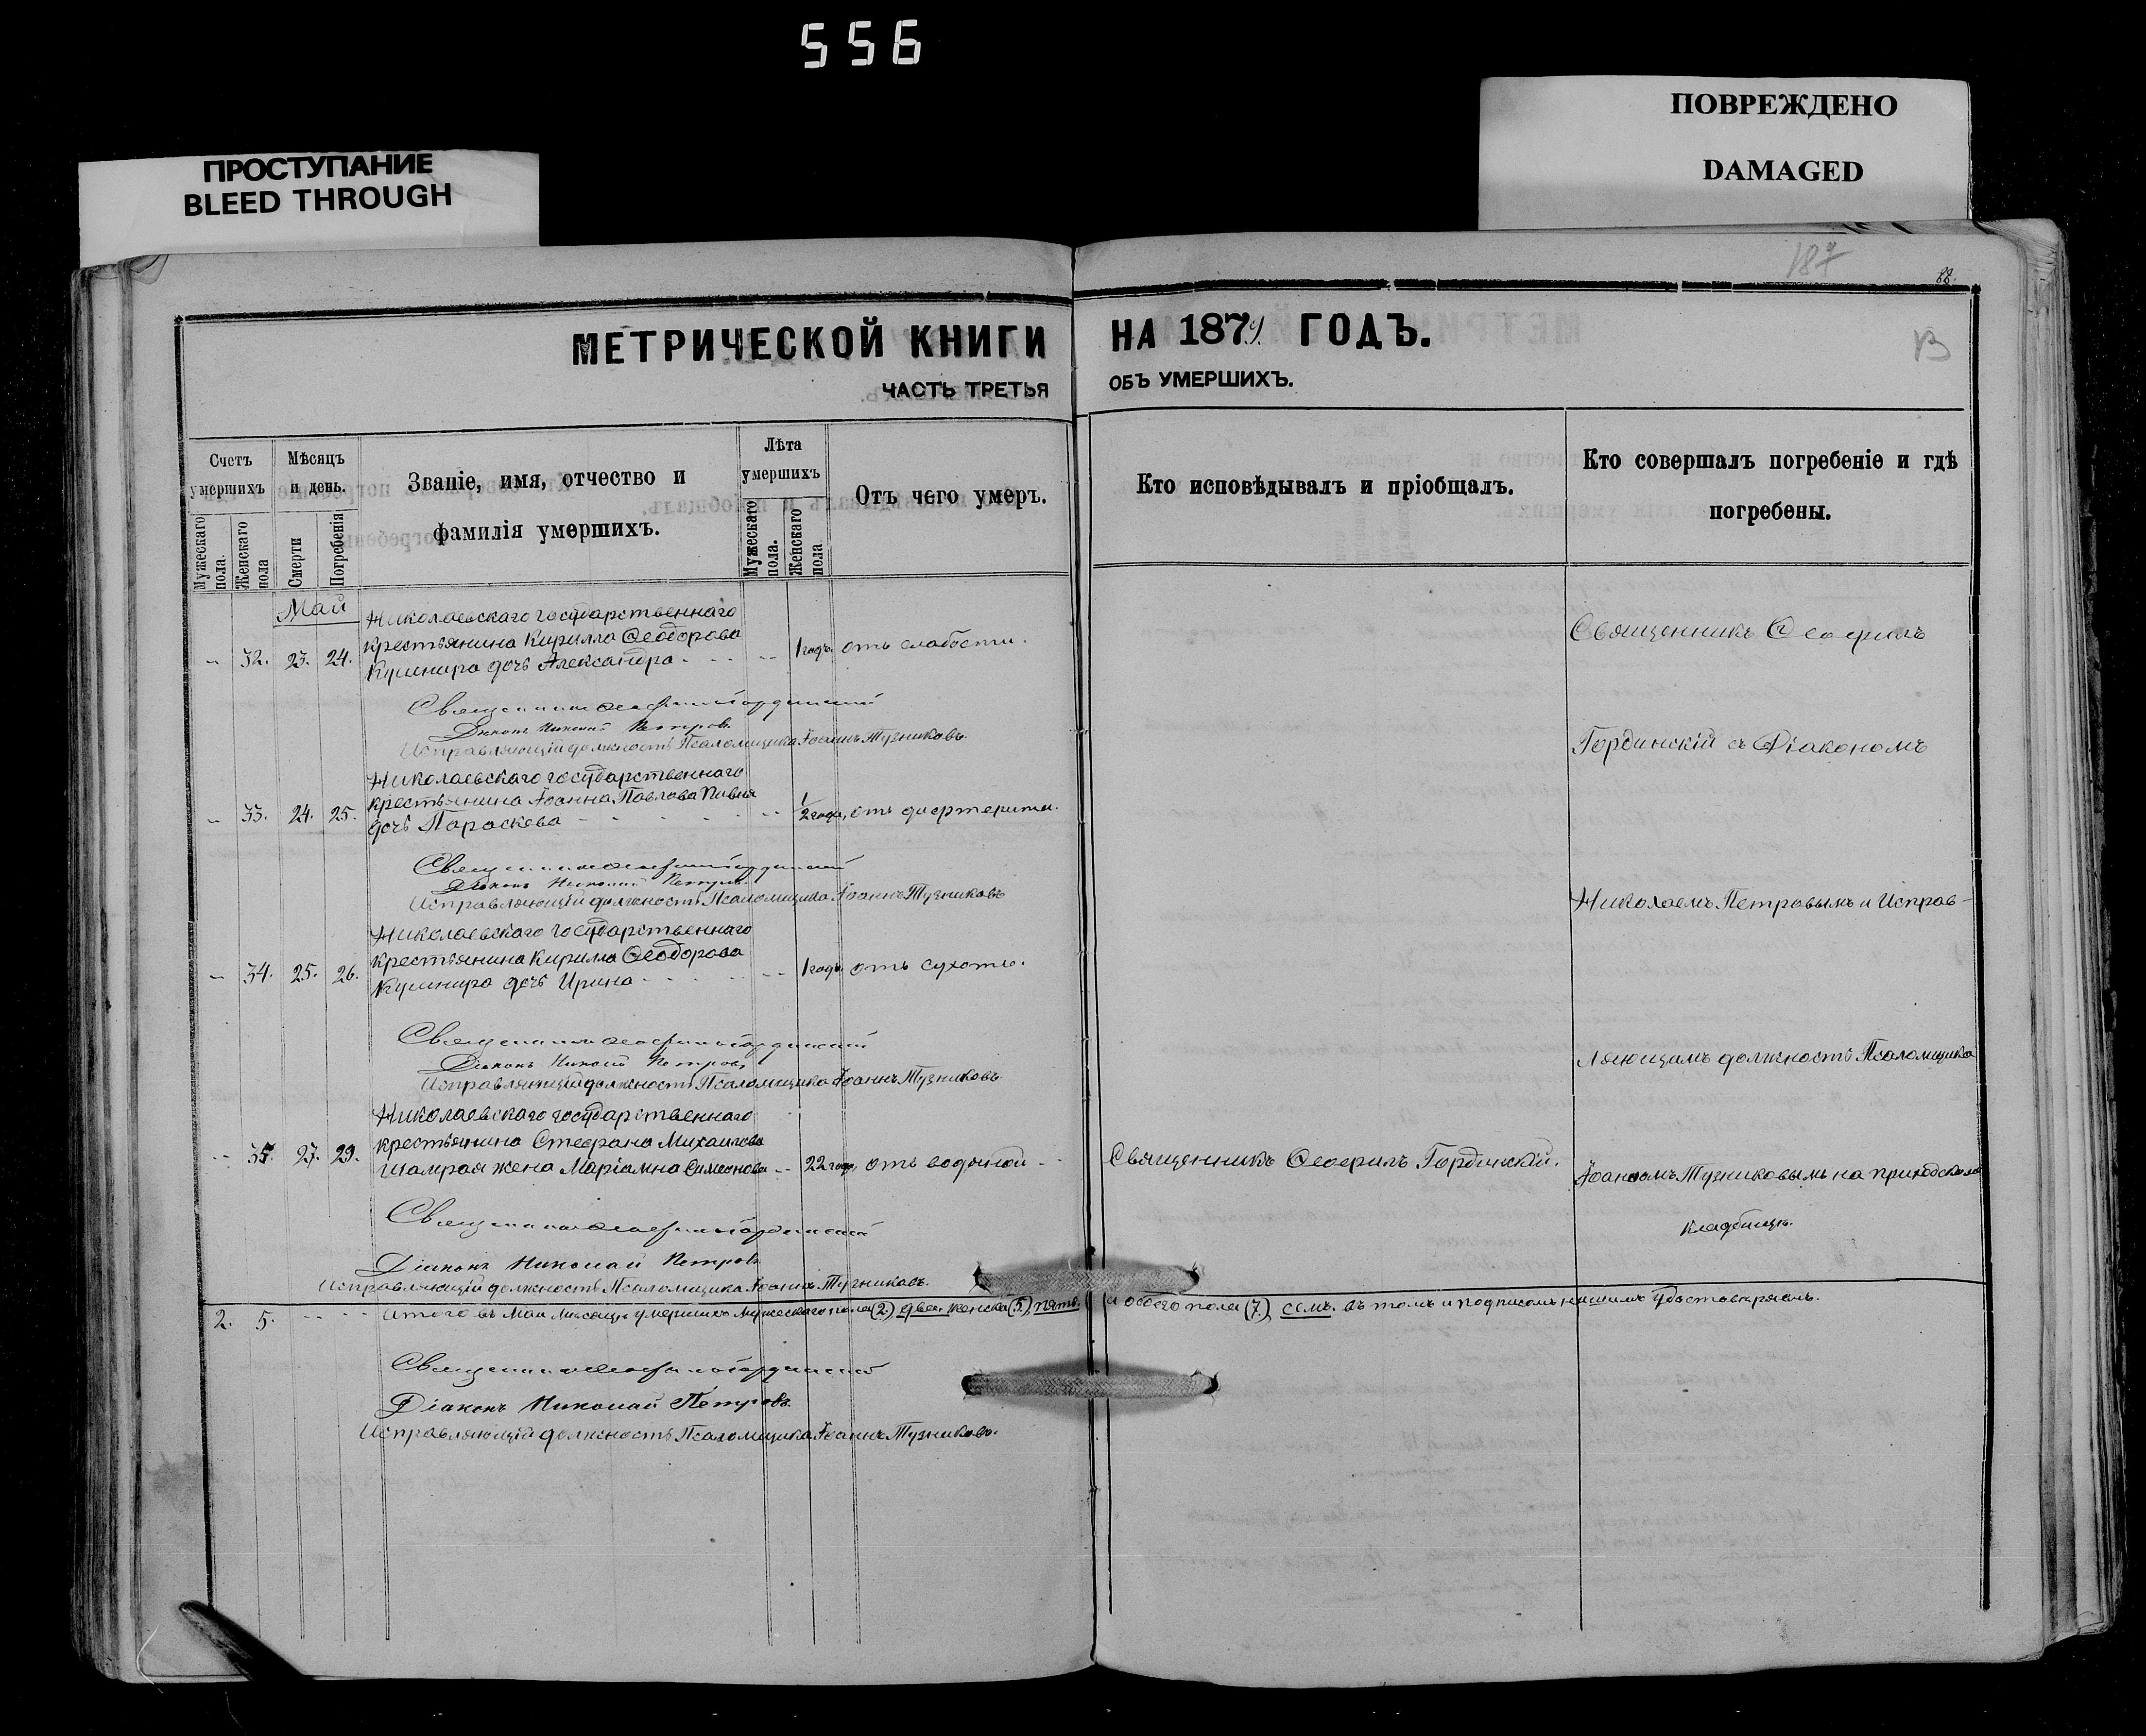 556
ПРОСТУПАНИЕ
BLEED THROUGH
ПОВРЕЖДЕНО
DAMAGED
187
88.
МЕТРИЧЕСКОЙ КНИГИ
НА 1879. ГОДЪ.
ЧАСТЬ ТРЕТЬЯ
ОБЪ УМЕРШИХЪ.
Счетъ умершихъ
Мужескаго пола.
Женскаго пола
Мѣсяцъ и день.
Смерти
Погребенія
Званіе, имя, отчество и
фамилія умершихъ.
Лѣта умершихъ
Мужескаго пола.
Женскаго пола
Отъ чего умеръ.
Кто исповѣдывалъ и пріобщалъ.
Кто совершалъ погребеніе и гдѣ
погребены.
Май
Николаевскаго государственнаго
крестьянина Кирилла Ѳеодорова
32. 23. 24. Кушнира дочь Александра 1 годъ. отъ слабости.
Священникъ Ѳеофилъ Гординскій
Діаконъ Николай Петровъ.
Исправляющій должность Псаломщика Іоаннъ Тузниковъ.
Николаевскаго государственнаго
крестьянина Іоанна Павлова Пивня
33. 24. 25. дочь Параскева 1/2 года, отъ дифтерита.
Священникъ Ѳеофилъ Гординскій
Діаконъ Николай Петровъ.
Исправляющій должность Псаломщика Іоаннъ Тузниковъ
Николаевскаго Государственнаго
крестьянина Кирилла Ѳеодорова
34. 25. 26. Кушнира дочь Ирина 1 годъ отъ сухоты.
Священникъ Ѳеофилъ Гординскій
Діаконъ Николай Петровъ,
Исправляющій должность Псаломщика Іоаннъ Тузниковъ.
Николаевскаго государственнаго
крестьянина Стефана Михаилова
35. 27. 29. Шамрая жена Маріамна Симеонова 22 года, отъ водяной
Священникъ Ѳеофилъ Гординскій
Діаконъ Николай Петровъ
Исправляющій должность Псаломщика Іоаннъ Тузниковъ.
Священникъ Ѳеофилъ Гординскій.
Священникъ Ѳеофилъ
Гординскій съ Діакономъ
Николаемъ Петровымъ и Исправ-
ляющимъ должность Псаломщика
Іоанномъ Тузниковымъ на приходскомъ
кладбищѣ.
2. 5. Итого въ Маи мѣсяцѣ умершихъ мужескаго пола (2.) два. женска (5.) пять. и обоего пола (7.) семь. въ томъ и подписомъ нашимъ удостовѣряемъ.
Священникъ Ѳеофилъ Гординскій
Діаконъ Николай Петровъ.
Исправляющій должность Псаломщика Іоаннъ Тузниковъ.